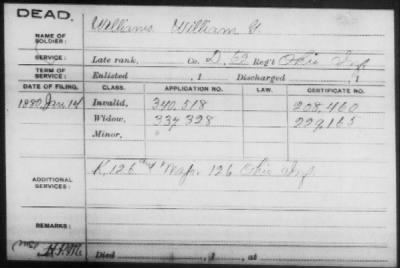 DEAD.
NAME OF SOLDIER: Williams William G.
SERVICE: Late rank, Co. D, 62 Reg't Ohio Inf
TERM OF SERVICE: Enlisted , 1 Discharged , 1
DATE OF FILING. CLASS. APPLICATION NO. LAW. CERTIFICATE NO.
1880 Jan 14 Invalid, 340.518 208,460
Widow, 334,328 229,165
Minor,
ADDITIONAL SERVICES: K, 126 & Maj. 126 Ohio Inf
REMARKS:
Died , 1 , at